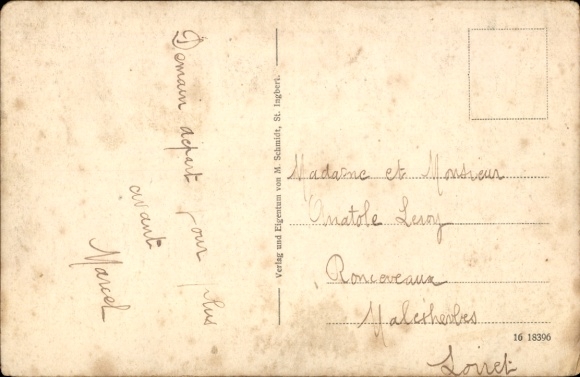 Demain départ pour plus
avant
Marcel
Verlag und Eigentum von M. Schmidt, St. Ingbert.
Madame et Monsieur
Anatole Leroy
Ronceveaux
Malesherbes
Loiret
16 18396